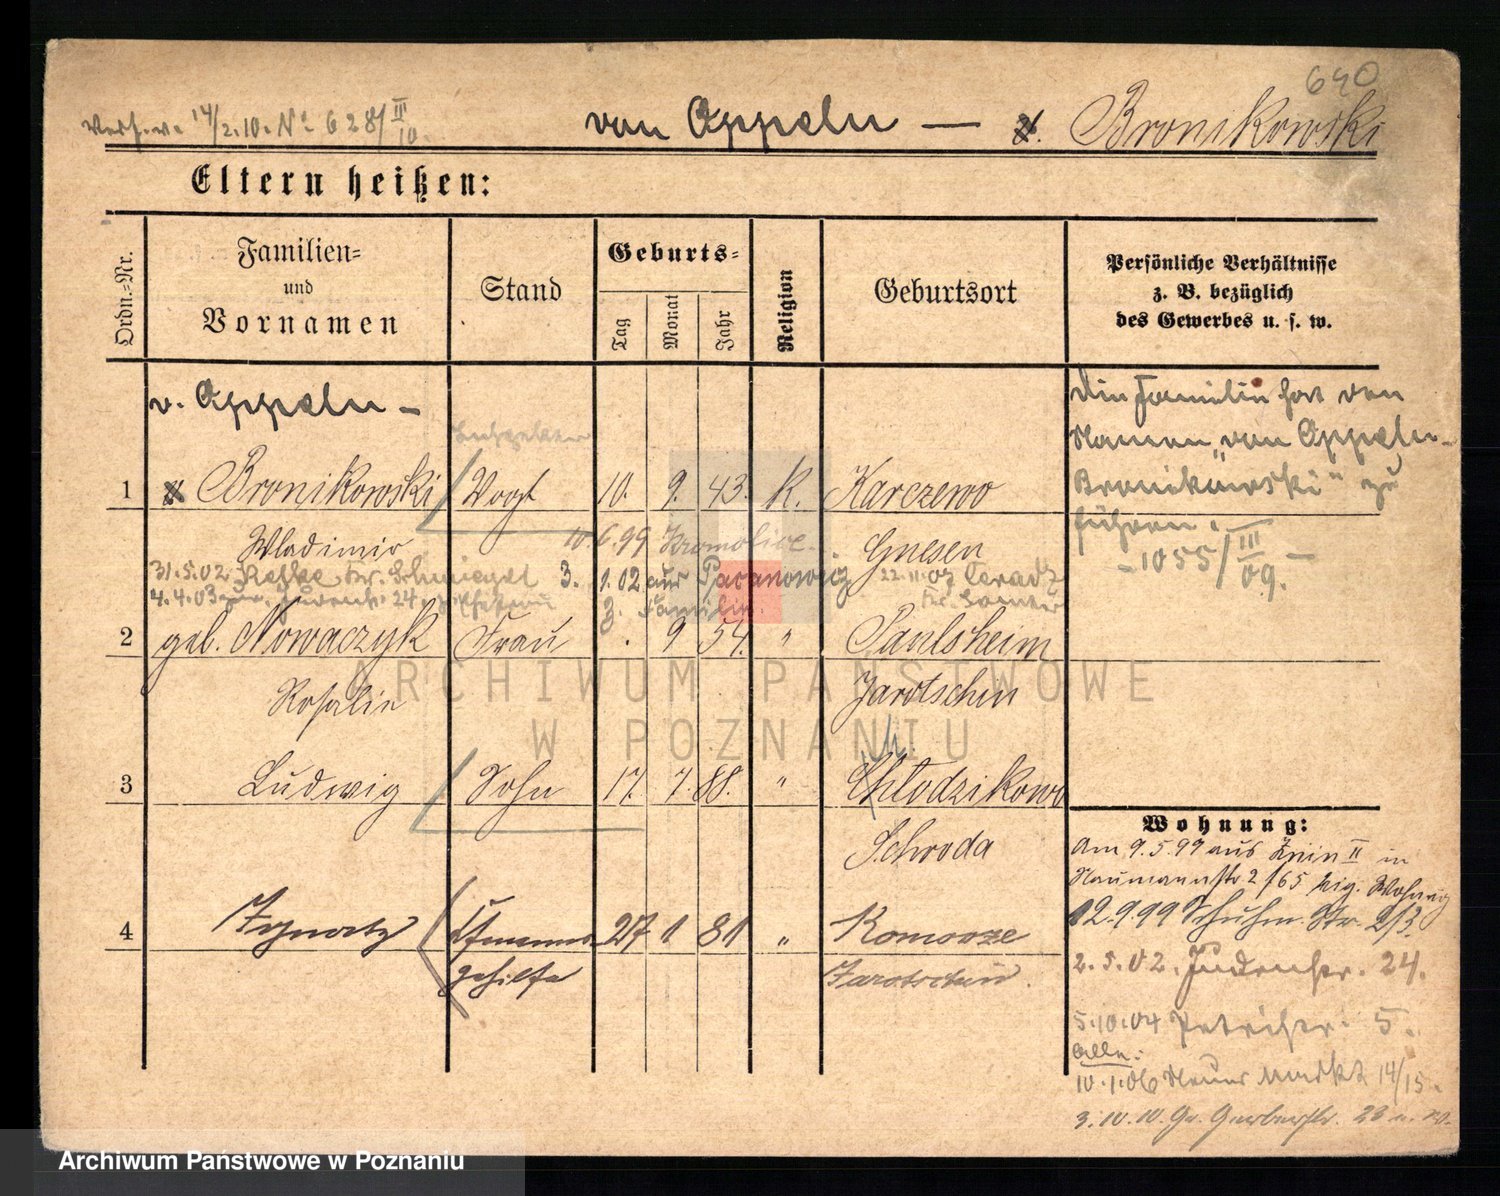 640
14/2.10. No 628/III 10.
von Appeln — v. Bronikowski
Eltern heißen:
Ordn.-Nr.
Familien-
und
Vornamen
Stand
Geburts-
Tag
Monat
Jahr
Religion
Geburtsort
Persönliche Verhältnisse
z. B. bezüglich
des Gewerbes u. s. w.
v. Appeln -
1 v. Bronikowski Vogt 10. 9. 43. K. Karczewo
Wladimir Gnesen
10.6.99 Kromolice.
31.5.02 Kr. Schmiegel 3. 1.02 aus Paranowicz 22.11.07
4.4.03 24. Familie.
2 geb. Nowaczyk Frau . 9 54. " Paulsheim
Rosalie Jarotschin
3 Ludwig Sohn 17. 7. 88. " Chlodzikowo
Schroda
4 Ignatz 27 1 81 " Komorze
gehilfe Jarotschin.
Die Familie hat den
Namen "von Appeln-
Bronikowski" zu
führen.
- 1055/III 09. -
Wohnung:
Am 9.5.99 aus Znin II in
Naumannstr 2/65 eig. Wohnung
12.9.99 Schuhm. Str. 2/3.
2.5.02. Judenstr. 24.
5.10.04 Petristr. 5.
Alle:
10.1.06 Neuer Markt 14/15.
3.10.10 Gr. Gerberstr. 23
ARCHIWUM PAŃSTWOWE
W POZNANIU
Archiwum Państwowe w Poznaniu